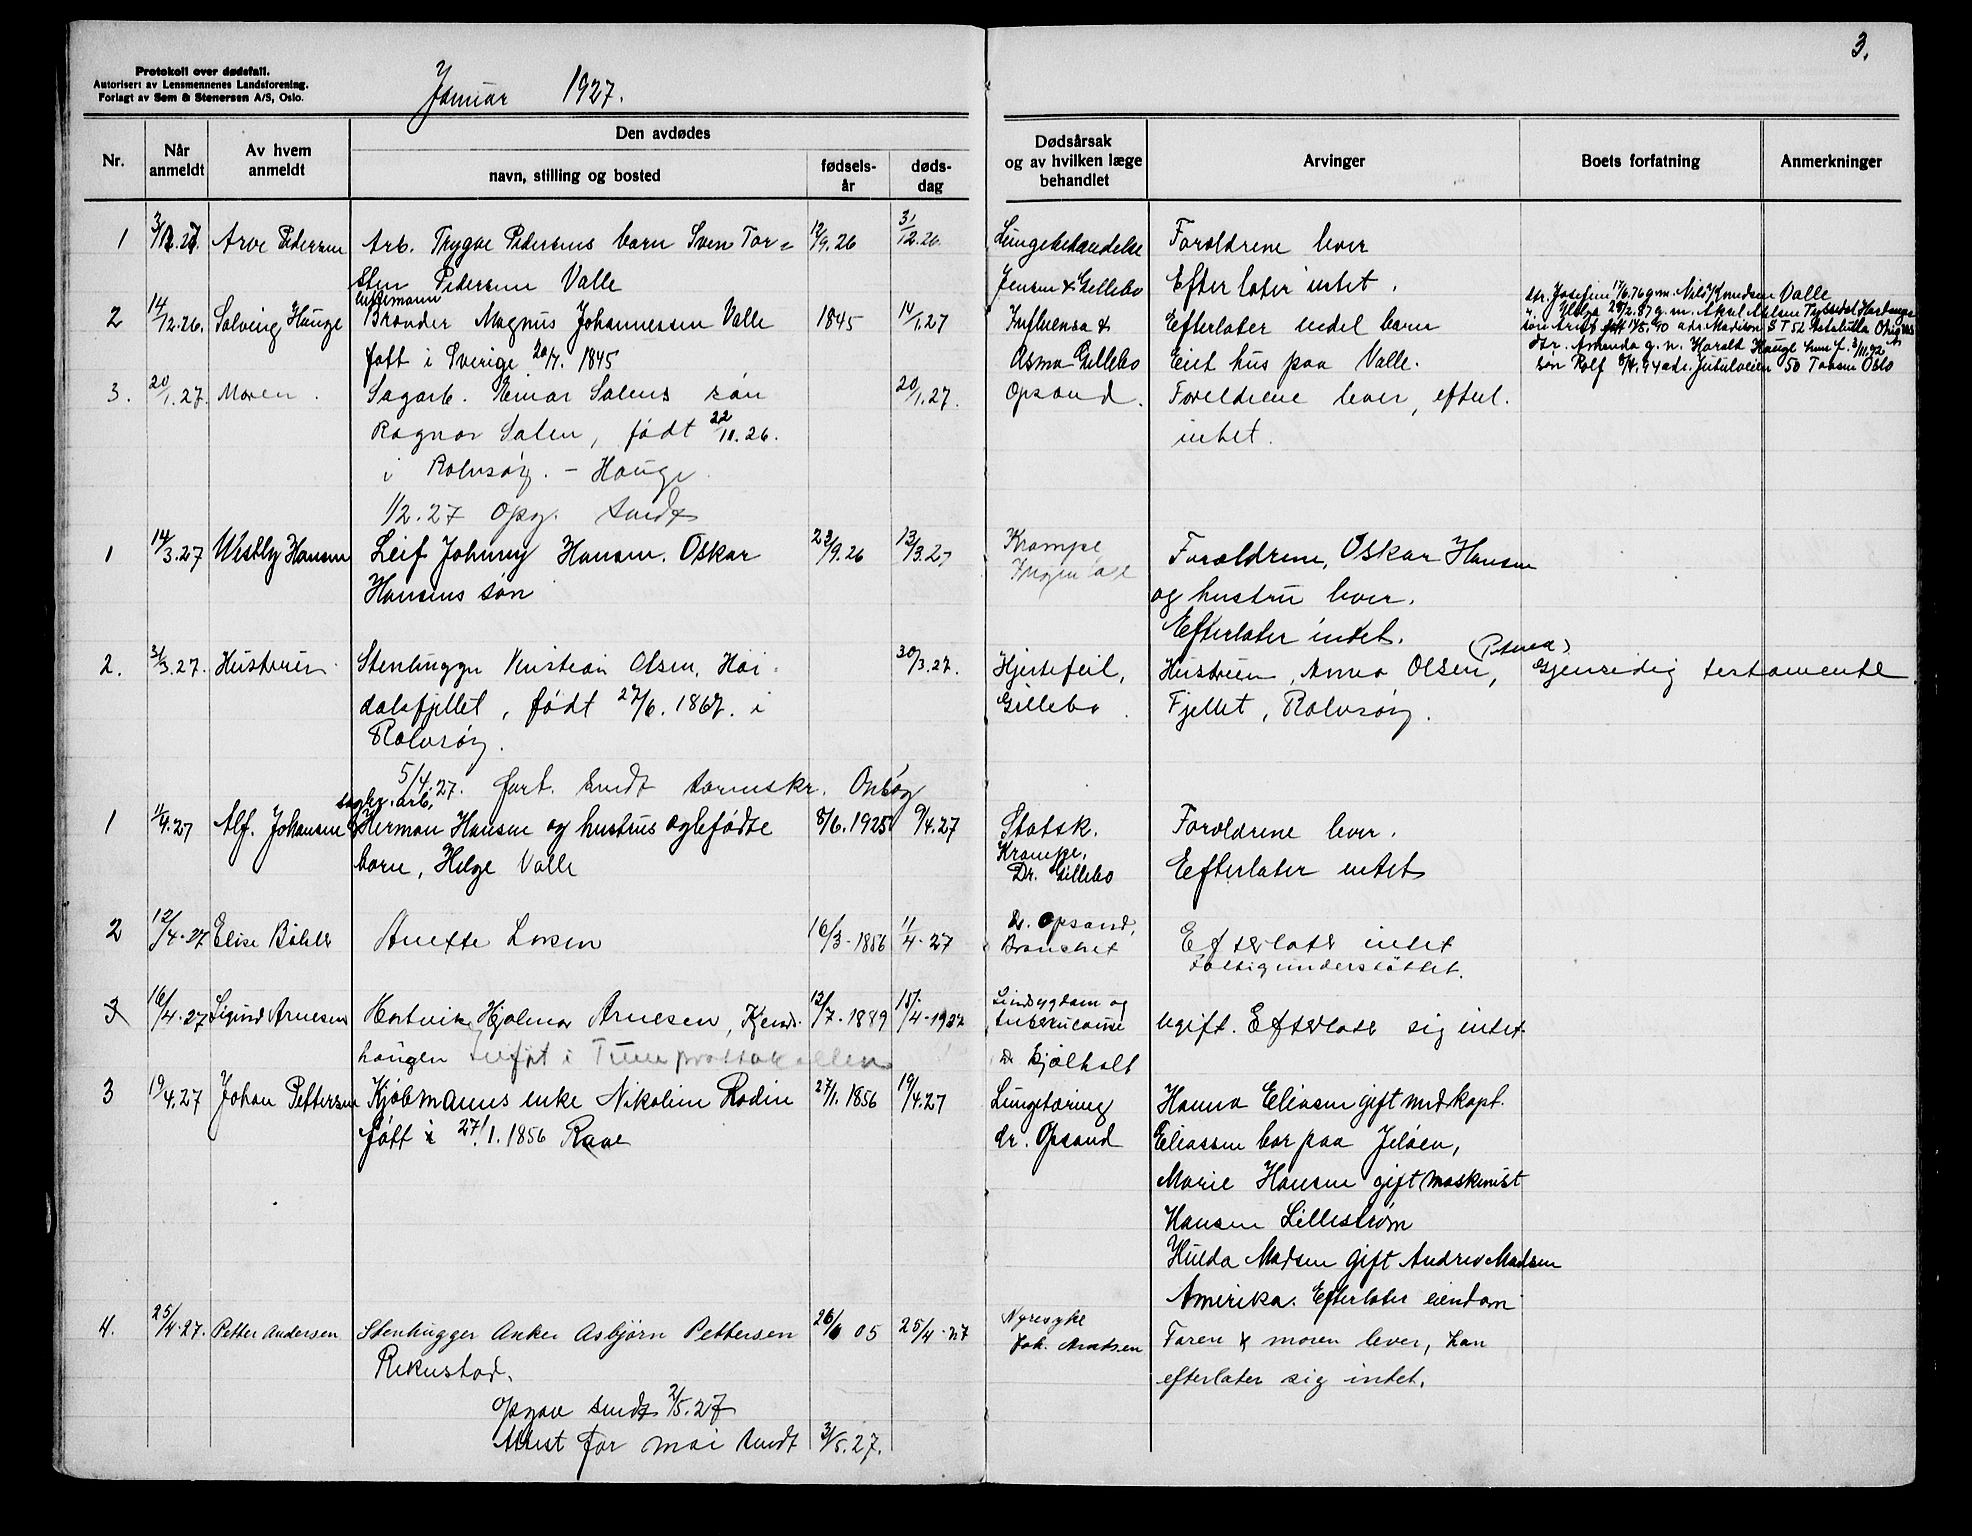 3.
Protokoll over dødsfall.
Autorisert av Lensmennenes Landsforening.
Forlagt av Sem & Stenersen A/S, Oslo.
Januar 1927.
Nr. Når anmeldt Av hvem anmeldt Den avdødes
navn, stilling og bosted fødsels-år døds-dag
Dødsårsak og av hvilken læge behandlet Arvinger Boets forfatning Anmerkninger
1 Arve Pedersen Arb. Trygve Pedersens barn Sven Tor= 12/9.26 31/12.26. Lungebetændelse Forældrene lever
sten Pedersen Valle Jensen & Gillebo Efterlater intet.
2 14/12.26. Solveig Hauge Brønder Magnus Johannessen Valle 1845 14/1.27 Influensa & Efterlater endel barn
født i Sverige 20/7. 1845 Asma Gillebo Eiet hus paa Valle.
dtr. Josefine 17/6.76 g.m. Nils Knudsen Valle
dtr. Amanda g.m. Harald Hauge
søn Rolf
Oslo
3. 20/1.27. Moren. Sagarb. Einar Salens søn 20/1.27. Opsand. Foreldrene lever, efterl.
Ragnar Salen, født 22/11.26. intet.
i Rolvsøy. – Hauge.
1/2.27 Opg. sendt
1 14/3.27 Westby Hansen Leif Johnny Hansen. Oskar 22/9.26 13/3.27 Krampe Forældrene, Oskar Hansen
Hansens søn Ingen og hustru lever.
Efterlater intet.
2. 31/3.27. Hustruen. Stenhugger Kristian Olsen, Hai- 30/3.27. Hjertefeil, Hustruen, Anna Olsen, Gjensidig testamente
dalsfjellet, født 27/6. 1867. i Gillebo. Fjellet, Rolvsøy.
Rolvsøy.
5/4.27. fort. sendt sorenskr. Onsøy
sagbr. arb.
1 11/4.27 Alf. Johansen Herman Hansen og hustrus egtefødte 8/6.1925 9/4.27 Statsk. Forældrene lever.
barn, Helge Valle Krampe, Efterlater intet
Dr. Gillebo
2 12/4-27 Elise Bøhler Anette Larsen 16/3-1856 11/4-27 Dr. Opsand, Efterlater intet
Bronchit Fattigunderstøttet.
3 16/4-27 Sigurd Arnesen Hartvik Hjalmar Arnesen, 12/7-1889 15/4-1927 Sindsygdom og Ugift. Efterlater sig intet
haugen Indført i Tune protokollen tuberculouse
Dr Kjølholt
3 19/4.27 Johan Pettersen Kjøbmanns enke Nikoline Rodin 27/1.1856 19/4.27 Lungetæring Hanna Eliasen gift med kapt.
født i 27/1. 1856 Raae dr. Opsand Eliassen bor paa Jeløen,
Marie Hansen gift maskinist
Hansen Lillestrøm
Hulda Madsen gift Andrew Madsen
Amerika. Efterlater eiendom
4. 25/4-27. Petter Andersen Stenhugger Anker Asbjørn Pettersen 26/6 05 25/4-27 Nyresyke Faren & moren lever, han
Rekustad. Joh. efterlater sig intet.
opgave sendt 2/5.27
for mai sendt 3/5.27.